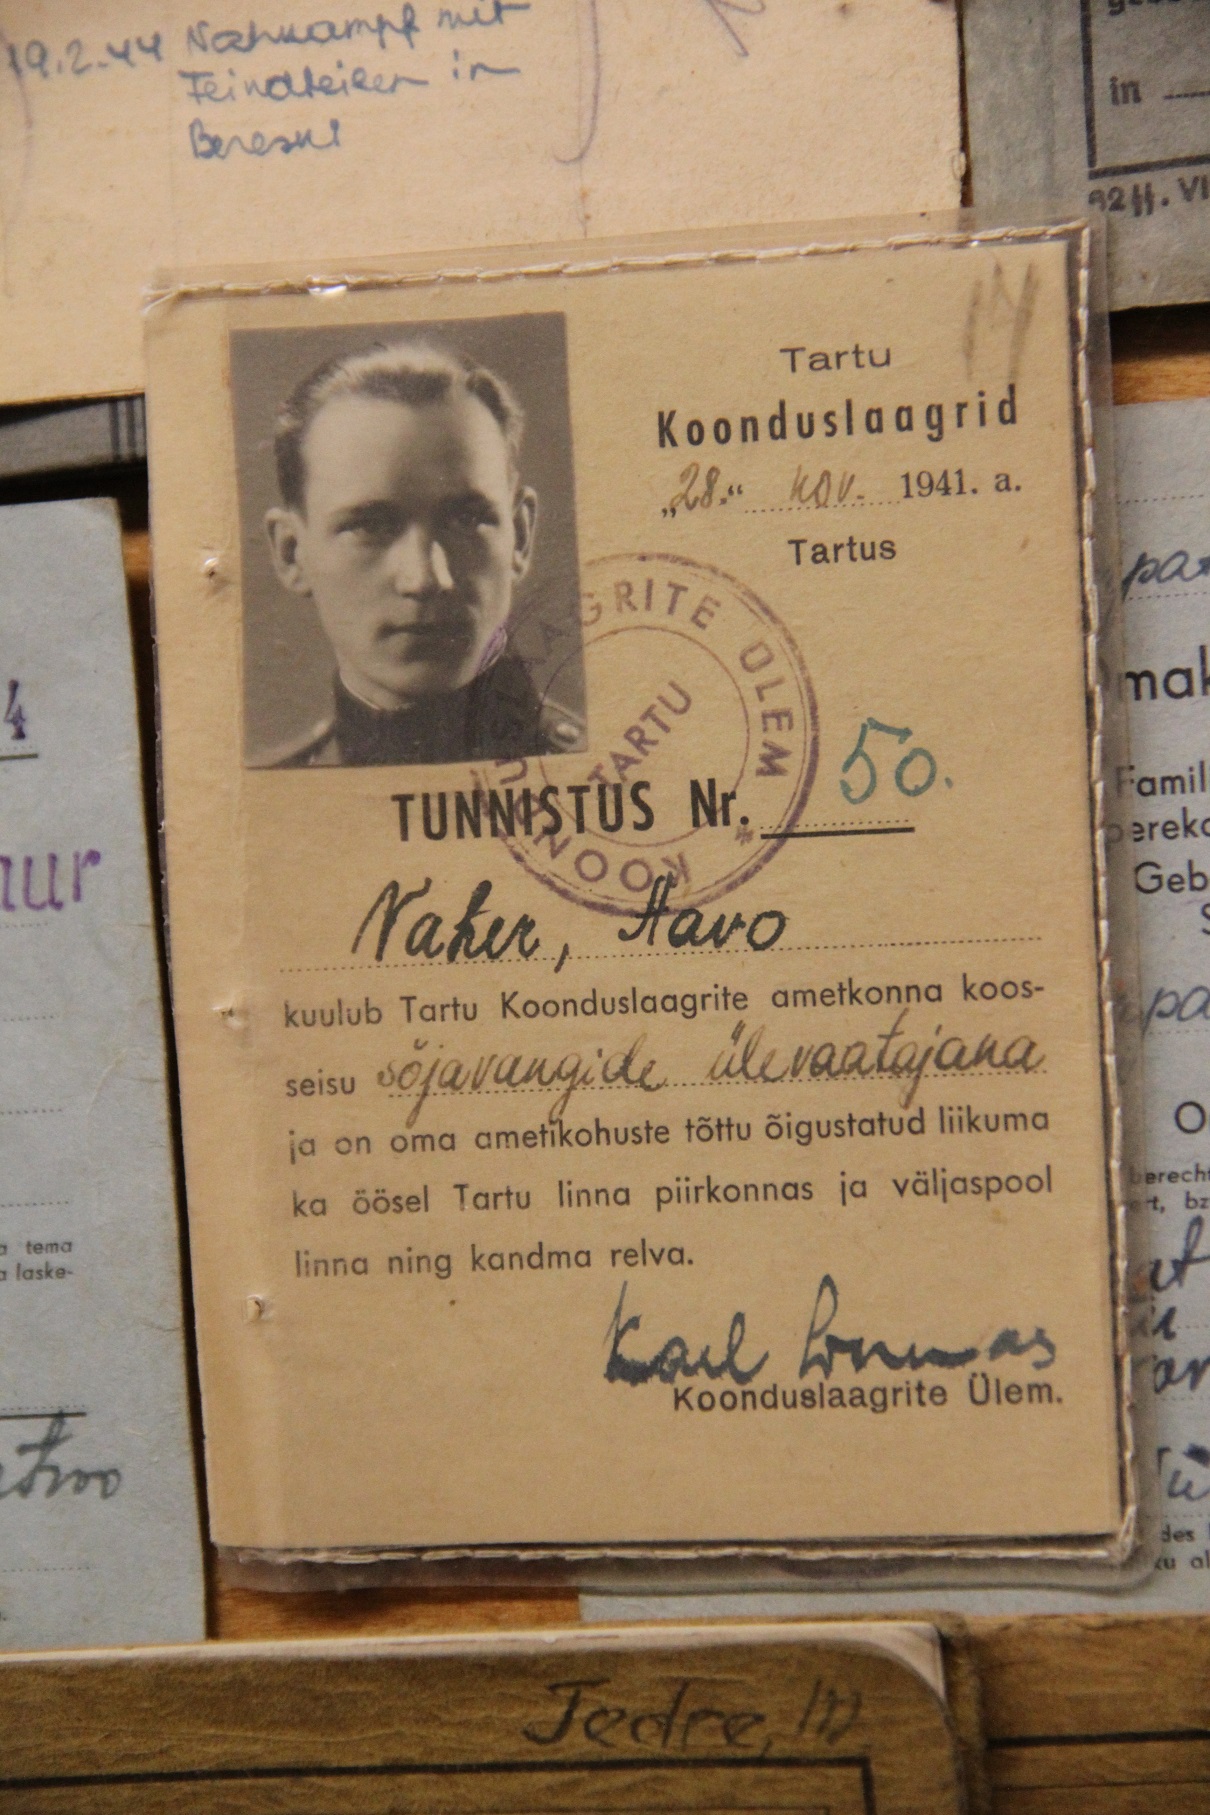 19.2.44 Nahkampf mit
Feindteilen in
Bereski
in
14
Tartu
Koonduslaagrid
„28.“ nov. 1941. a.
Tartus
KOONDUSLAAGRITE ÜLEM
TARTU
TUNNISTUS Nr. 50.
Naher, Havo
kuulub Tartu Koonduslaagrite ametkonna koos-
seisu sõjavangide ülevaatajana
ja on oma ametikohuste tõttu õigustatud liikuma
ka öösel Tartu linna piirkonnas ja väljaspool
linna ning kandma relva.
Karl Linnas
Koonduslaagrite Ülem.
4
tema
laske-
Famil
Geb
des
Jedre,